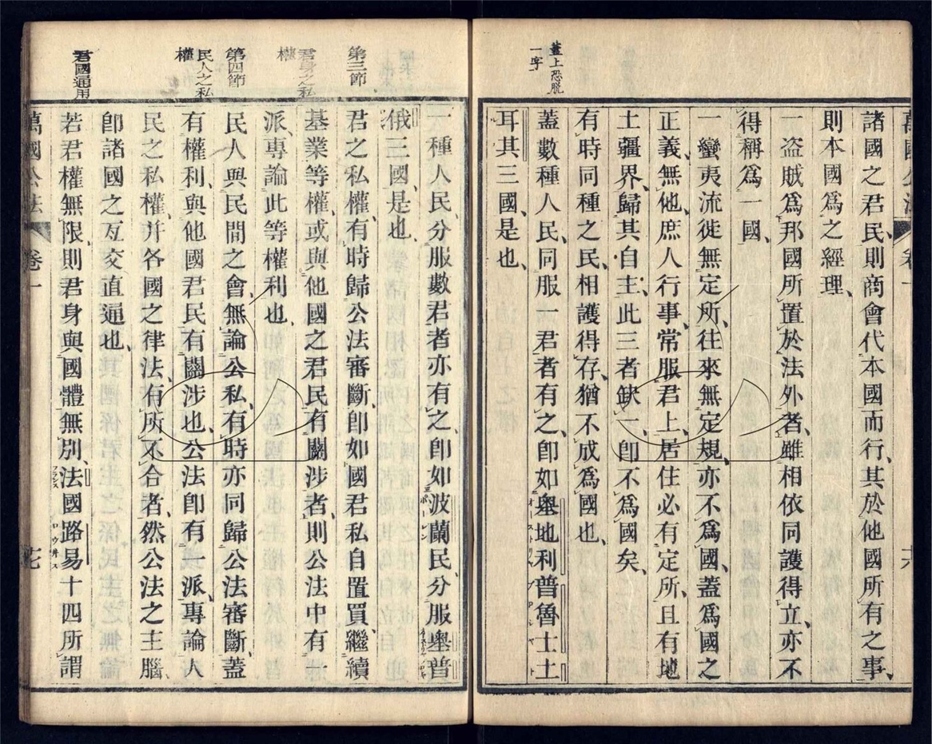 蓋上恐脫
一字
諸國之君民則商會代本國而行其於他國所有之事
則本國爲之經理
一盜賊爲邦國所置於法外者雖相依同護得立亦不
得稱爲一國
一蠻夷流徙無定所往來無定規亦不爲國蓋爲國之
正義無他庶人行事常服君上居住必有定所且有地
土疆界歸其自主此三者缺一卽不爲國矣
有時同種之民相護得存猶不成爲國也
蓋數種人民同服一君者有之卽如墺地利普魯士土
耳其三國是也
一種人民分服數君者亦有之卽如波蘭民分服墺普
俄三國是也
第三節
君身之私
權
君之私權有時歸公法審斷卽如國君私自置買繼續
基業等權或與他國之君民有關涉者則公法中有一
派專論此等權利也
第四節
民人之私
權
民人與民間之會無論公私有時亦同歸公法審斷蓋
有權利與他國君民有關涉也公法卽有一派專論人
民之私權幷各國之律法有所不合者然公法之主腦
卽諸國之互交直通也
君國通用
若君權無限則君身與國體無別法國路易十四所謂
萬國公法
卷一